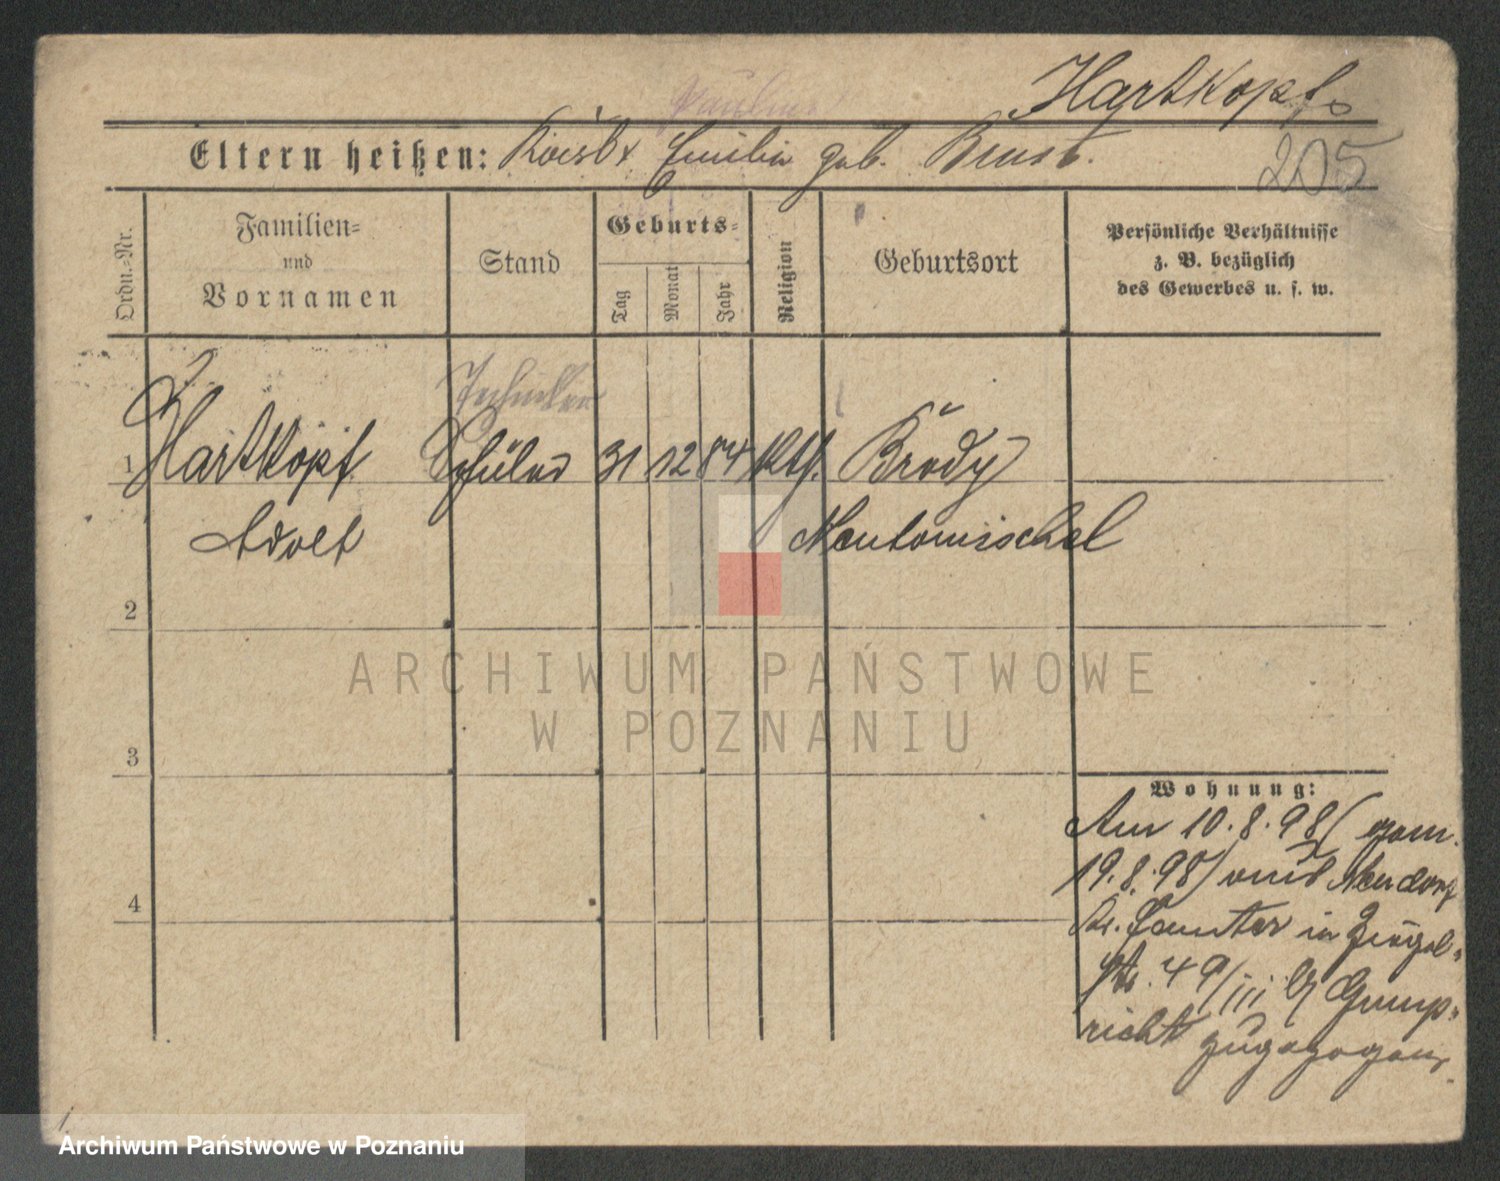 Hartkopf
205
Eltern heißen: Emilie geb.
Ordn.-Nr.
Familien-
und
Vornamen
Stand
Geburts-
Tag
Monat
Jahr
Religion
Geburtsort
Persönliche Verhältnisse
z. B. bezüglich
des Gewerbes u. s. w.
Techniker
1 Hartkopf Schüler 31 12 84 kth. Brody
Adolf Neutomischel
2
3
4
Wohnung:
Am 10.8.98 (gem.
19.8.98) aus Neudorf
Kr. Samter in Ziegel-
str. 49/III b/ Gump-
richt zugezogen.
ARCHIWUM PAŃSTWOWE
W POZNANIU
Archiwum Państwowe w Poznaniu